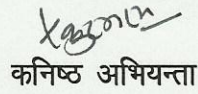 कनिष्ठ अभियन्ता